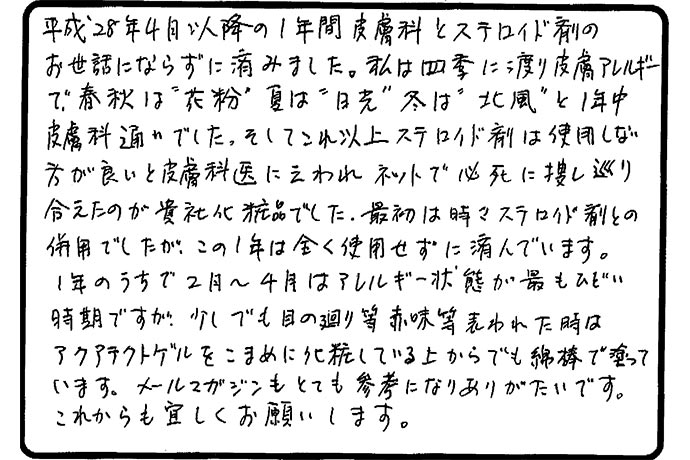 平成28年4月以降の1年間皮膚科とステロイド剤の
お世話にならずに済みました。私は四季に渡り皮膚アレルギー
で、春秋は"花粉"夏は"日光"冬は"北風"と1年中
皮膚科通いでした。そしてこれ以上ステロイド剤は使用しない
方が良いと皮膚科医に云われネットで必死に捜し巡り
合えたのが貴社化粧品でした。最初は時々ステロイド剤との
併用でしたが、この1年は全く使用せずに済んでいます。
1年のうちで2月〜4月はアレルギー状態が最もひどい
時期ですが、少しでも目の廻り等赤味等表われた時は
アクアテクトゲルをこまめに化粧している上からでも綿棒で塗って
います。メールマガジンもとても参考になりありがたいです。
これからも宜しくお願いします。